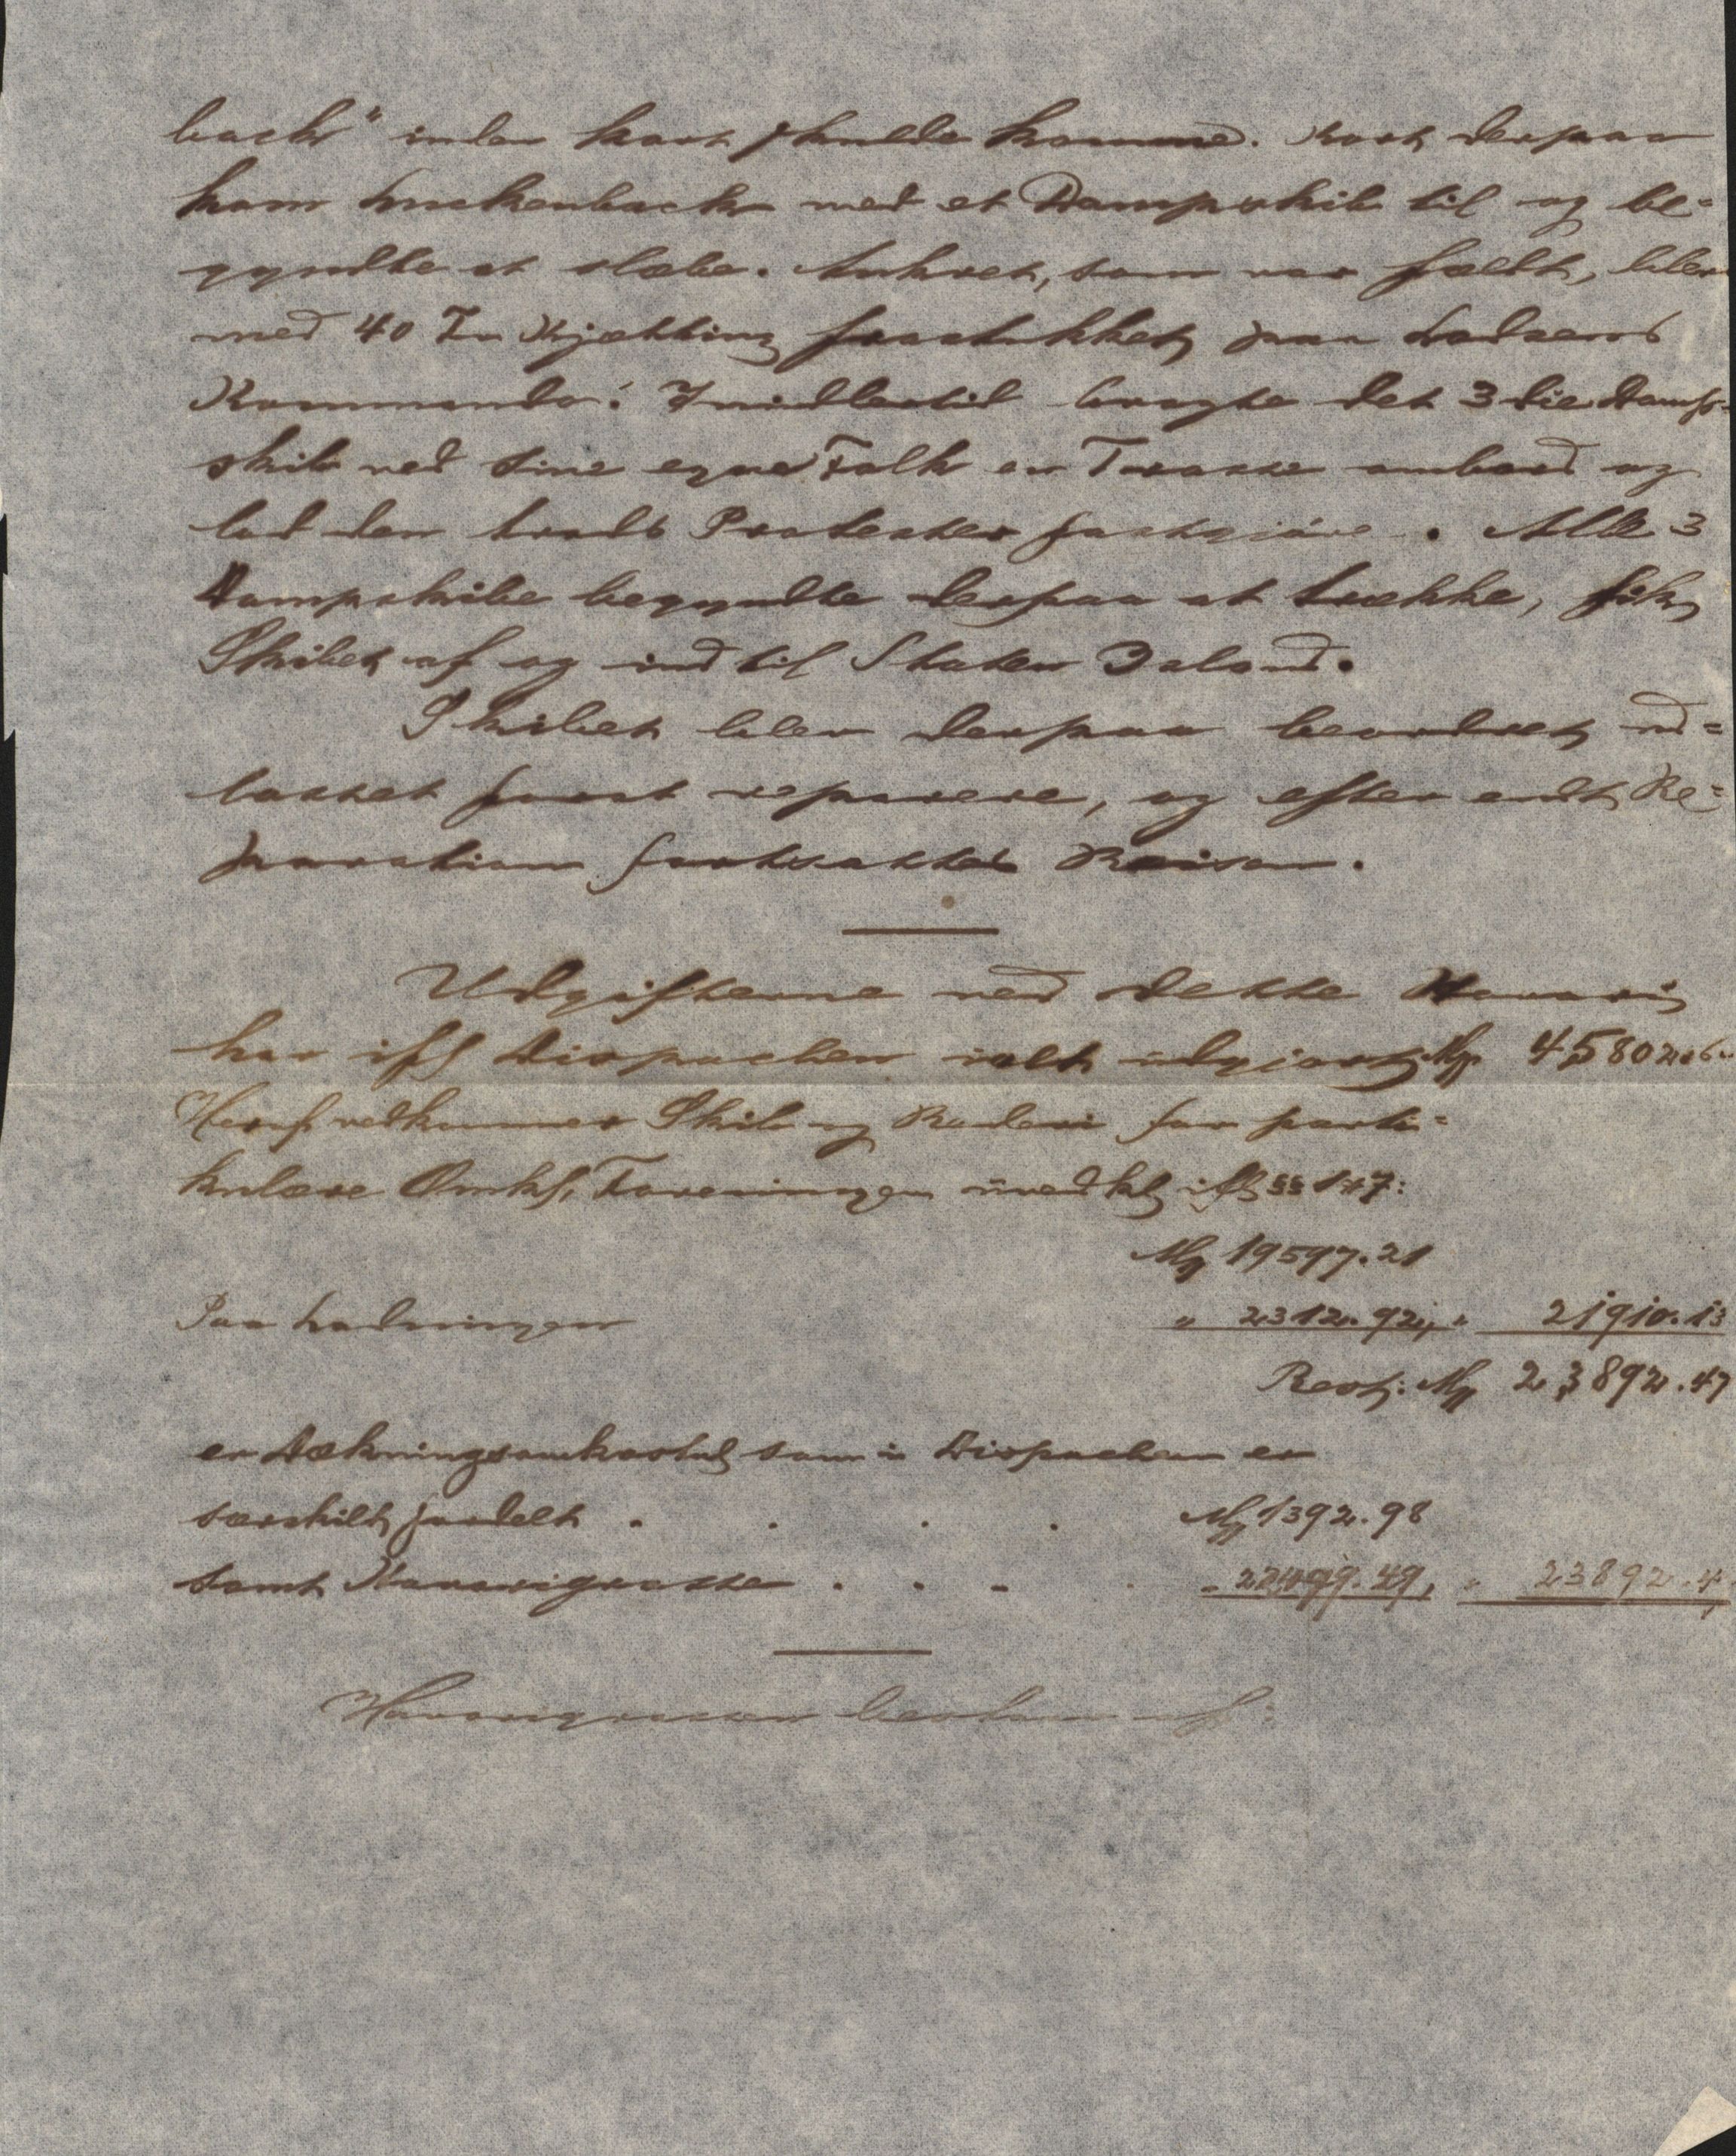 bach" inden kort skulde komme. Kort derpaa
kom Luckenbach med et Dampskib til og be=
gyndte at slæbe. Ankret, som var fældt, blev
med 40 Fv Kjætting frastukket paa Lodsens
Kommando. Imidlertid bragte det 3die Damp=
skib ved sine egne Folk en Trosse ombord og
lod den trods Protester fastgjøre. Alle 3
Dampskibe begyndte derpaa at trække, fik
Skibet af og ind til Staten Island.
Skibet blev derpaa beordret ud=
losset forat reparere, og efter endt Re=
paration fortsattes Reisen.
Udgifterne ved dette Havari
har iflg Dispachen ialt udgjort Mk 45802.60
Heraf vedkommer Skib og Rederi for parti=
kulære Omk, Foreningen uvedk iflg §§ 1+7:
Mk 19597.21
Paa Ladningen " 2312.92, " 21910.13
Rest: Mk 23892.47
er Dækningsomkostn som i Dispachen er
særskilt fordelt . . . . Mk 1392.98
samt Havarigrosse . . . . " 22499.49, " 23892.4
Havarigrossen bestaar af: